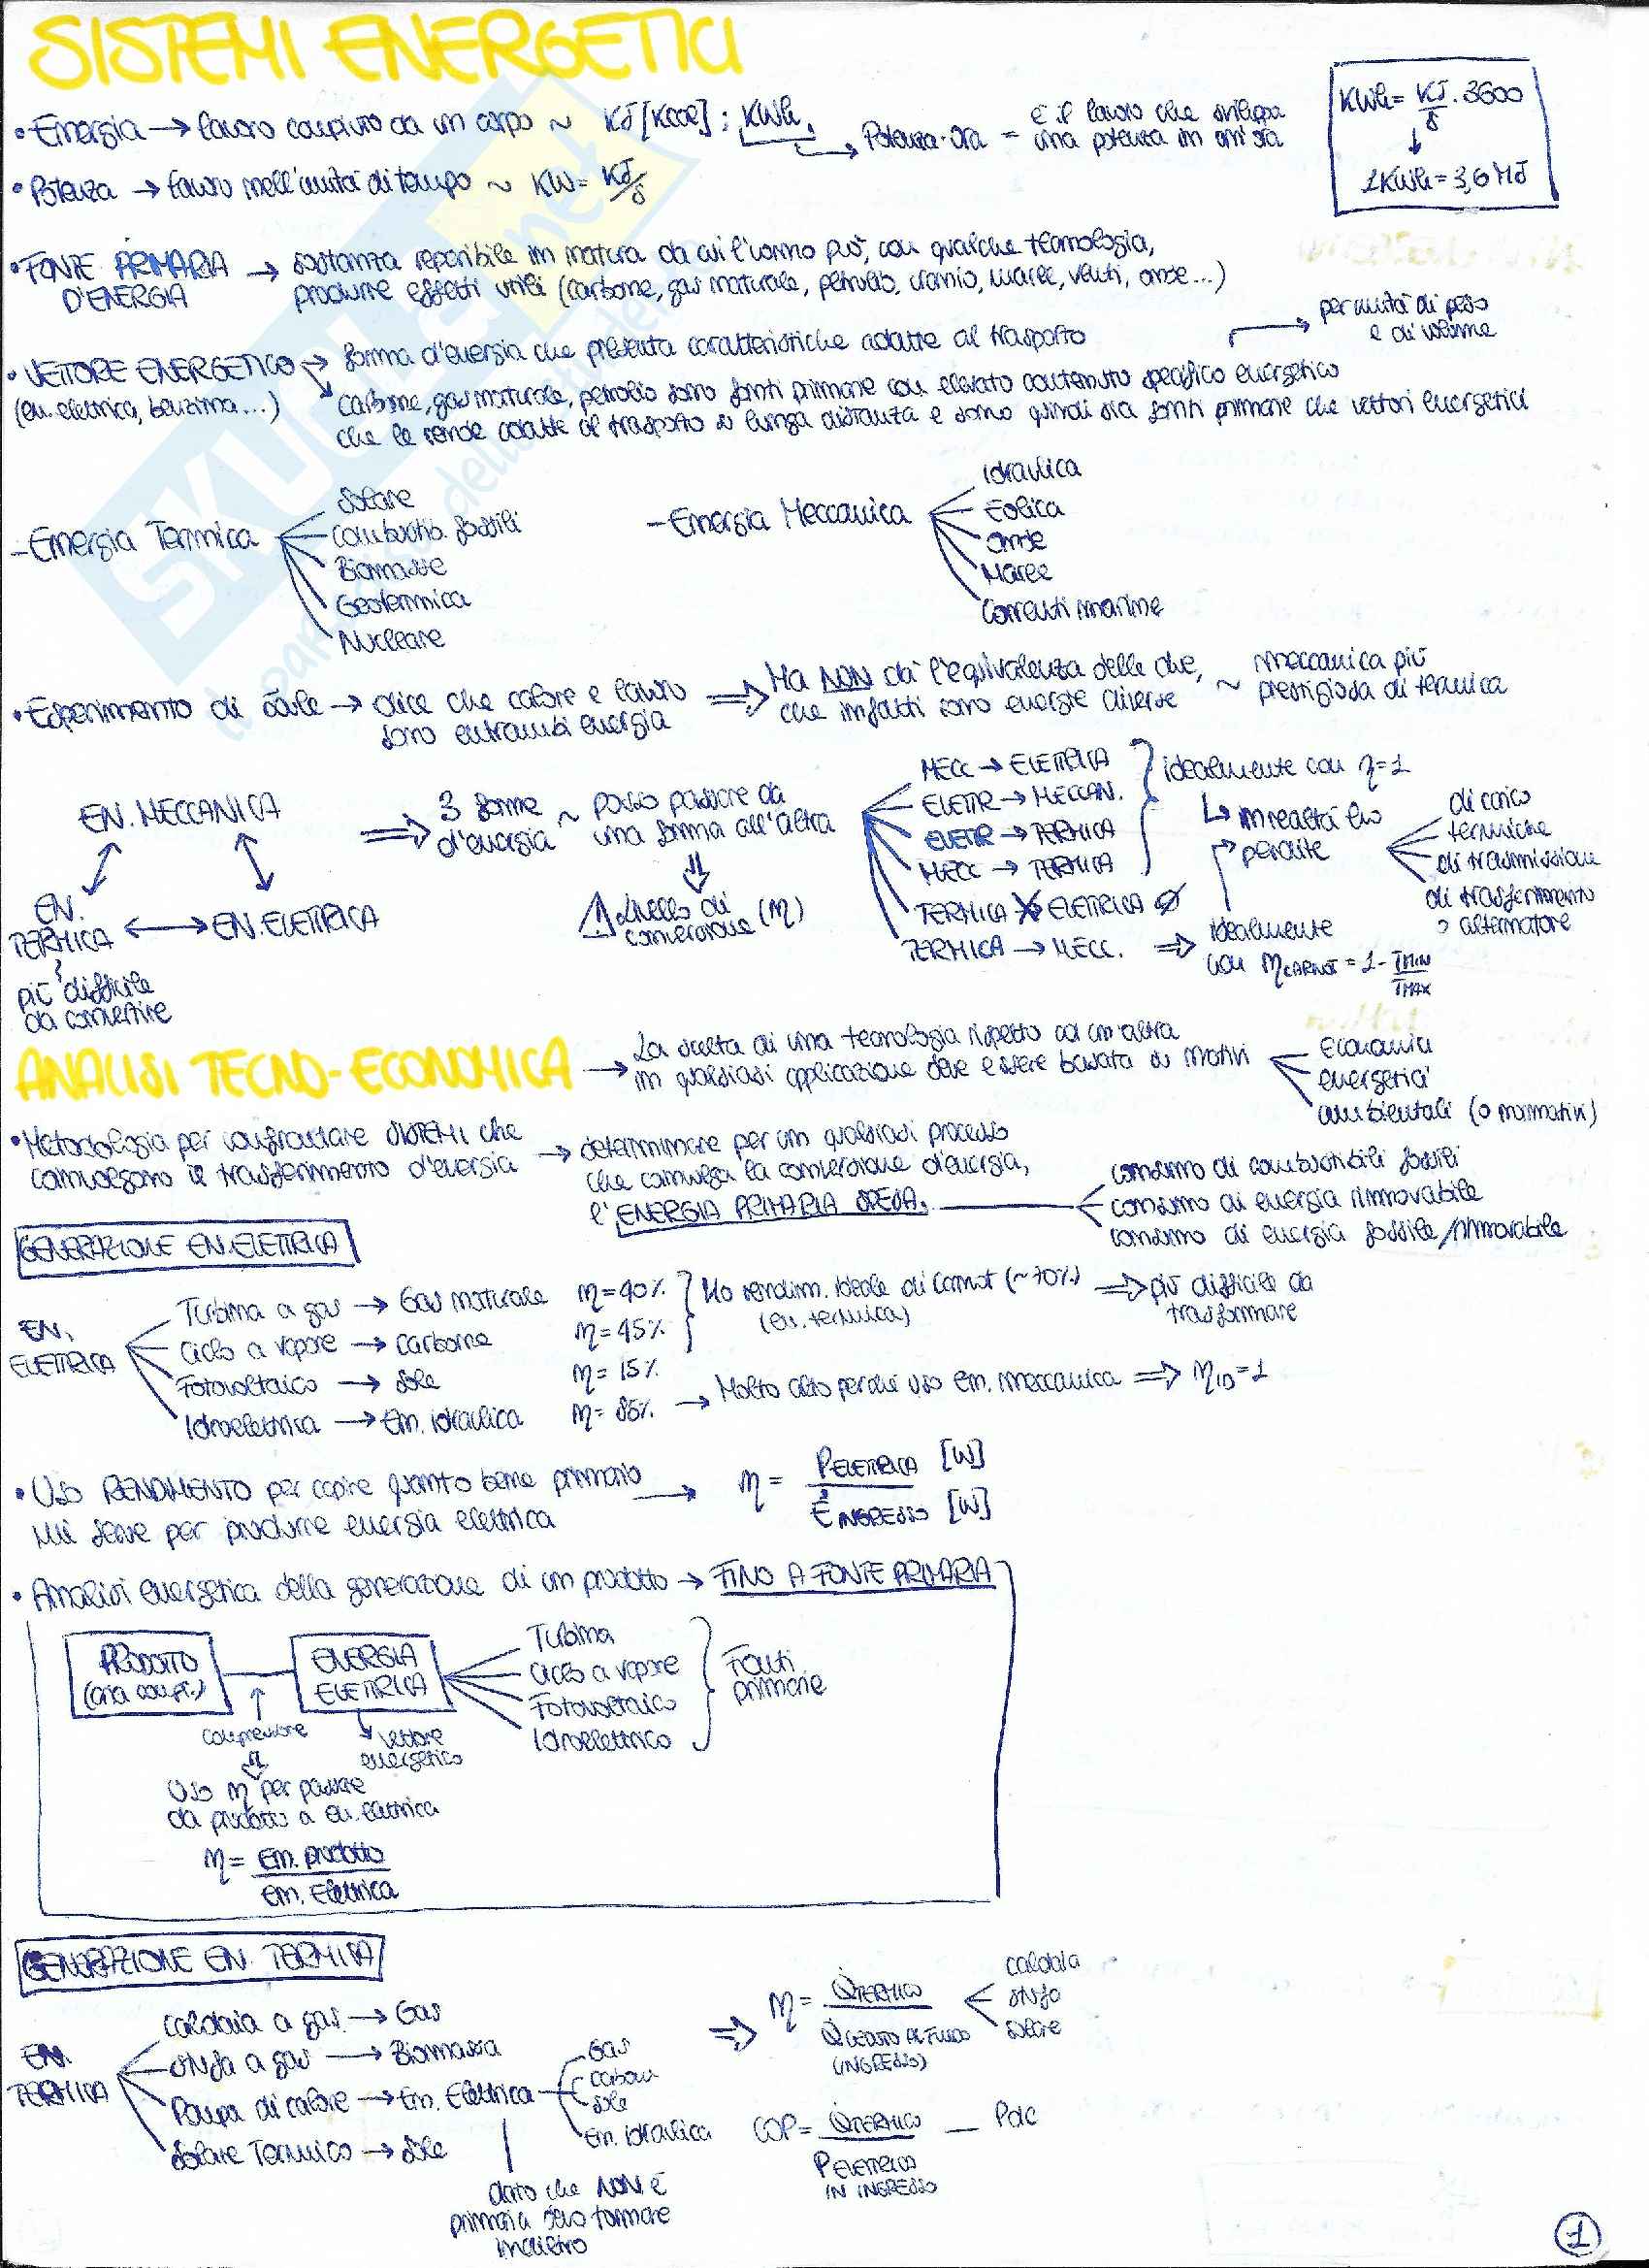 SISTEMI ENERGETICI
• Energia → lavoro compiuto da un corpo ~ KJ [Kcal] ; KWh → Potenza·ora = è il lavoro che sviluppa una potenza in un'ora
KWh = KJ/s · 3600
↓
1 KWh = 3,6 MJ
• Potenza → lavoro nell'unità di tempo ~ KW = KJ/s
• FONTE PRIMARIA D'ENERGIA → sostanza reperibile in natura da cui l'uomo può, con qualche tecnologia,
produrre effetti utili (carbone, gas naturale, petrolio, uranio, maree, venti, onde...)
• VETTORE ENERGETICO → forma d'energia che presenta caratteristiche adatte al trasporto
(en. elettrica, benzina...)
carbone, gas naturale, petrolio sono fonti primarie con elevato contenuto specifico energetico → per unità di peso e di volume
che le rende adatte al trasporto a lunga distanza e sono quindi sia fonti primarie che vettori energetici
- Energia Termica
Solare
Combustib. fossili
Biomasse
Geotermica
Nucleare
- Energia Meccanica
Idraulica
Eolica
Onde
Maree
Correnti marine
• Esperimento di Joule → dice che calore e lavoro sono entrambi energia ⇒ Ma NON dà l'equivalenza delle due, che infatti sono energie diverse ~ meccanica più prestigiosa di termica
EN. MECCANICA
EN. TERMICA ↔ EN. ELETTRICA
più difficile da convertire
⇒ 3 forme d'energia ~ posso passare da una forma all'altra
⇓
⚠ livello di conversione (η)
MECC → ELETTRICA
ELETTR → MECCAN.
ELETTR → TERMICA
MECC → TERMICA
idealmente con η = 1
↳ in realtà ho perdite
di carico
termiche
di trasmissione
di trasferimento
o alternatore
TERMICA ↛ ELETTRICA ∅
TERMICA → MECC. ⇒ idealmente con ηCARNOT = 1 - TMIN/TMAX
ANALISI TECNO-ECONOMICA → La scelta di una tecnologia rispetto ad un'altra
in qualsiasi applicazione deve essere basata su motivi
economici
energetici
ambientali (o normativi)
• Metodologia per confrontare SISTEMI che
coinvolgono il trasferimento d'energia → determinare per un qualsiasi processo
che coinvolga la conversione d'energia,
l'ENERGIA PRIMARIA SPESA.
consumo di combustibili fossili
consumo di energia rinnovabile
consumo di energia fossile/rinnovabile
GENERAZIONE EN. ELETTRICA
EN. ELETTRICA
Turbina a gas → Gas naturale η = 40%
Ciclo a vapore → carbone η = 45%
Ho rendim. ideale di Carnot (~70%) (en. termica) ⇒ più difficile da trasformare
Fotovoltaico → sole η = 15%
Idroelettrica → En. idraulica η = 85% → Molto alto perché uso en. meccanica ⇒ ηID = 1
• Uso RENDIMENTO per capire quanto bene primario
mi serve per produrre energia elettrica → η = PELETTRICA [W] / Ė INGRESSO [W]
• Analisi energetica della generazione di un prodotto → FINO A FONTE PRIMARIA
PRODOTTO (aria compr.)
ENERGIA ELETTRICA
Turbina
Ciclo a vapore
Fotovoltaico
Idroelettrico
Fonti primarie
compressore
vettore energetico
Uso η per passare
da prodotto a en. elettrica
η = En. prodotto / En. Elettrica
GENERAZIONE EN. TERMICA
EN. TERMICA
Caldaia a gas → Gas
Stufa a gas → Biomassa
Pompa di calore → En. Elettrica
Gas
carbone
sole
en. idraulica
Solare Termico → sole
dato che NON è
primaria devo tornare
indietro
⇒ η = Q̇TERMICO / Q̇CEDUTO AL FLUIDO (INGRESSO)
caldaia
stufa
solare
COP = Q̇TERMICO / PELETTRICA IN INGRESSO — PdC
1
SKUOLA.net